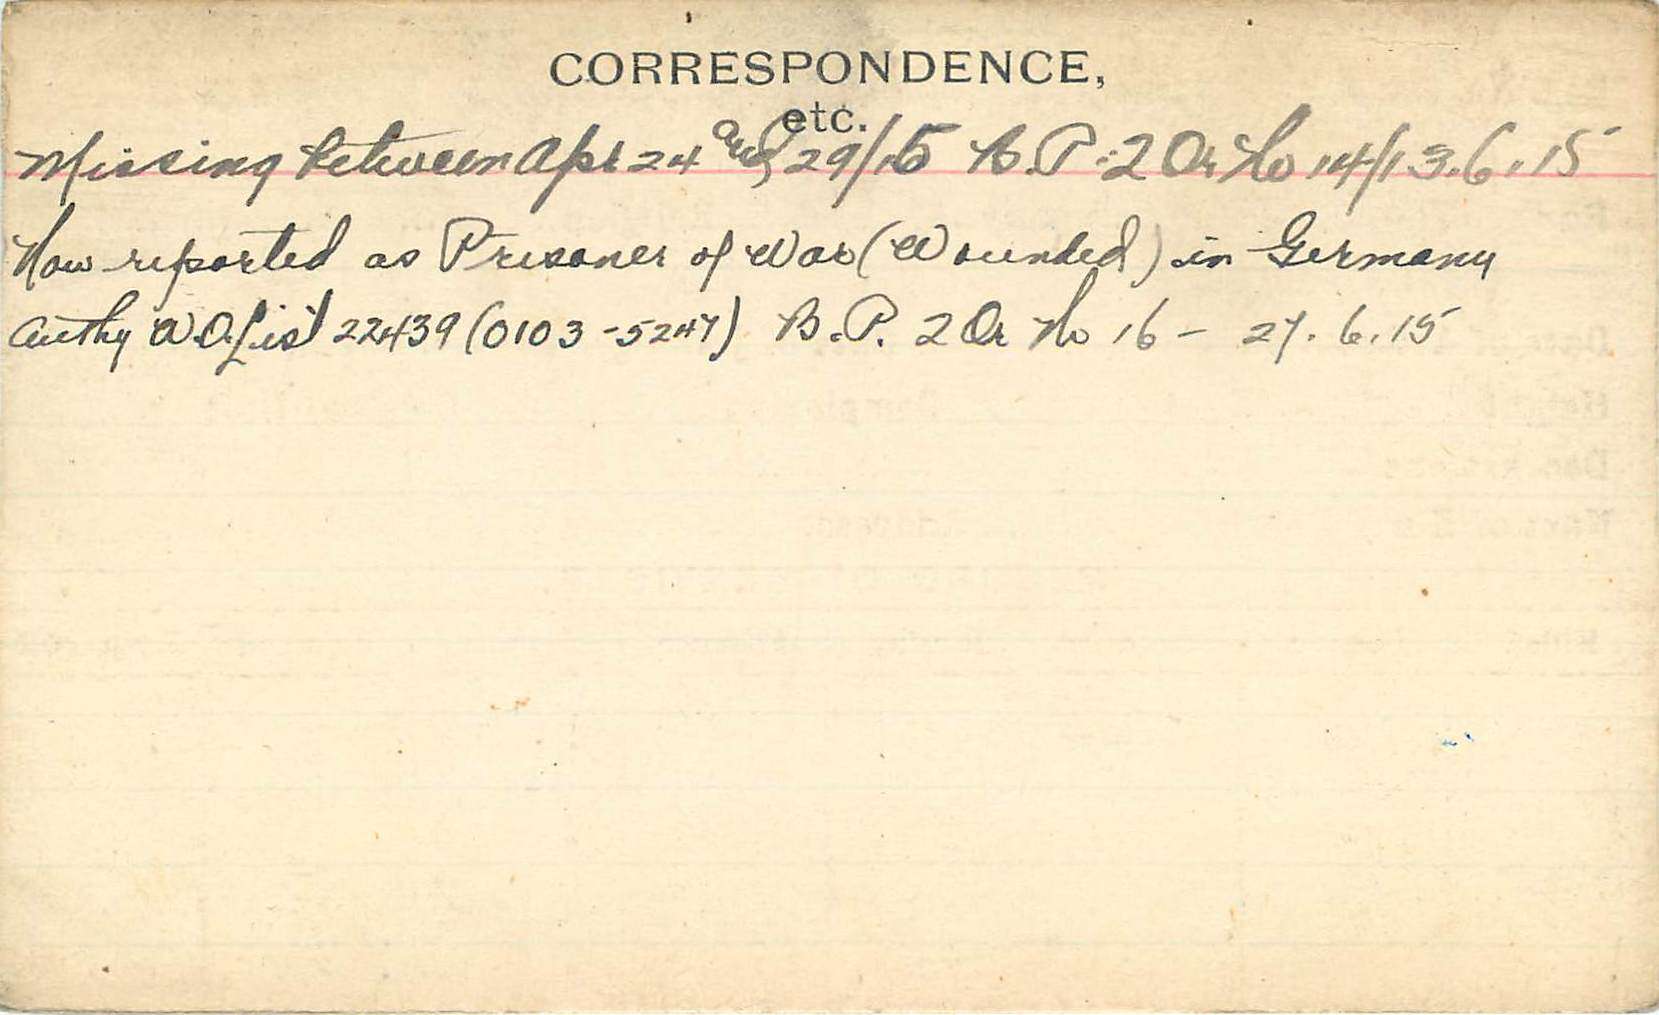 CORRESPONDENCE,
etc.
Missing between Apr 24 and 29/15 B.P. 2 Or No 14/13.6.15
Now reported as Prisoner of War (Wounded) in Germany
Authy W.O. List 22439 (0103-5247) B.P. 2 Or No 16 - 27.6.15